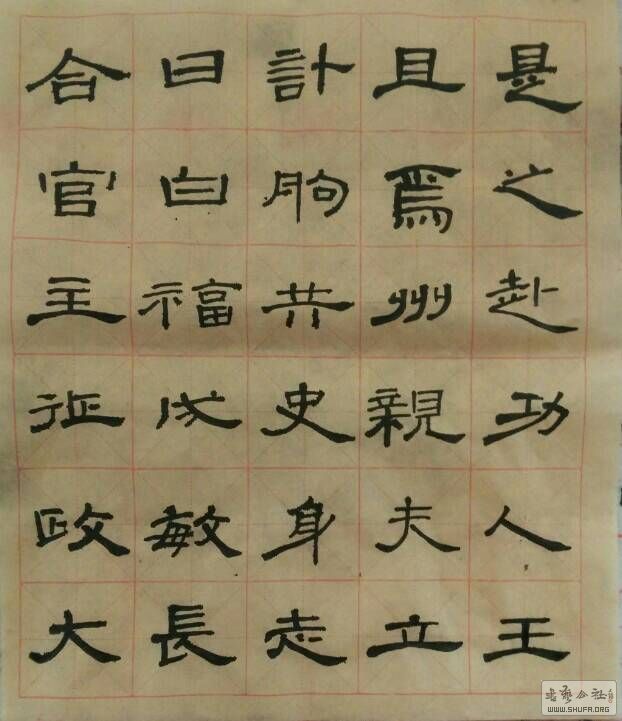 是之赴功人王
且焉州親夫立
計朐共史身志
曰白福成敏長
合官主征政大
书艺公社
WWW.SHUFA.ORG